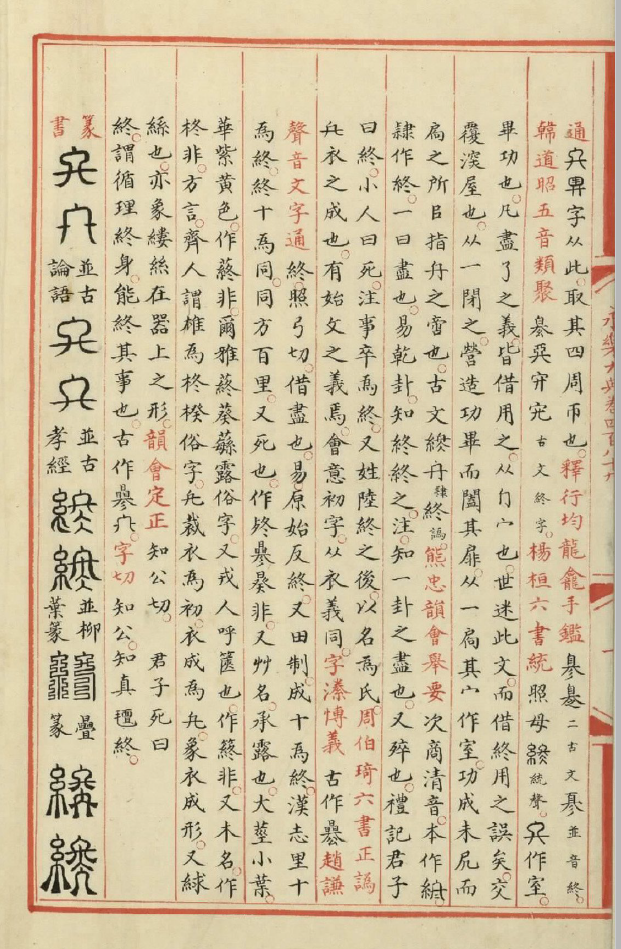 永樂大典卷四百八十九
通字从此。取其四周帀也。釋行均龍龕手鑑二古文並音終。
韓道昭五音類聚古文終字。楊桓六書統照母終統聲。作室
畢功也。凡盡了之義。皆借用之。从冂宀也。世迷此文。而借終用之。誤矣。交
覆深屋也。从一閉之。營造功畢而闔其扉。从一扃其宀。作室功成未凥而
扃之。所㠯指之啻也。古文隸終譌。熊忠韻會舉要次商清音。本作
隷作終。一曰盡也。易乾卦。知終終之。注。知一卦之盡也。又殫也。禮記君子
曰終。小人曰死。注事卒爲終。又姓陸終之後。以名爲氏。周伯琦六書正譌
衣之成也。有始文之義焉。會意初字。从衣義同。字潫博義古作趙謙
聲音文字通終照弓切。借盡也。易原始反終。又田制。成十爲終。漢志里十
爲終。終十爲同。同方百里。又死也。作非。又艸名。承露也。大莖小葉。
華紫黄色。作蔠非。爾雅蔠葵蘩露俗字。又戎人呼篋也。作蔠非。又木名。作
柊非。方言。齊人謂椎爲柊楑俗字。裁衣爲初。衣成爲。象衣成形。又絿
絲也。亦象縷絲在器上之形。韻會定正知公切。君子死曰
終。謂循理終身。能終其事也。古作。字切知公。知真邅終。
篆書並古論語並古孝經並柳葉篆疊篆